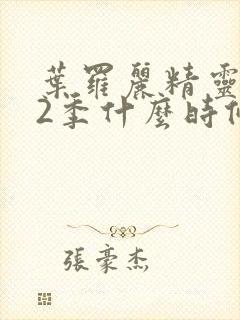 葉羅麗精靈
2季什麼時
張豪杰